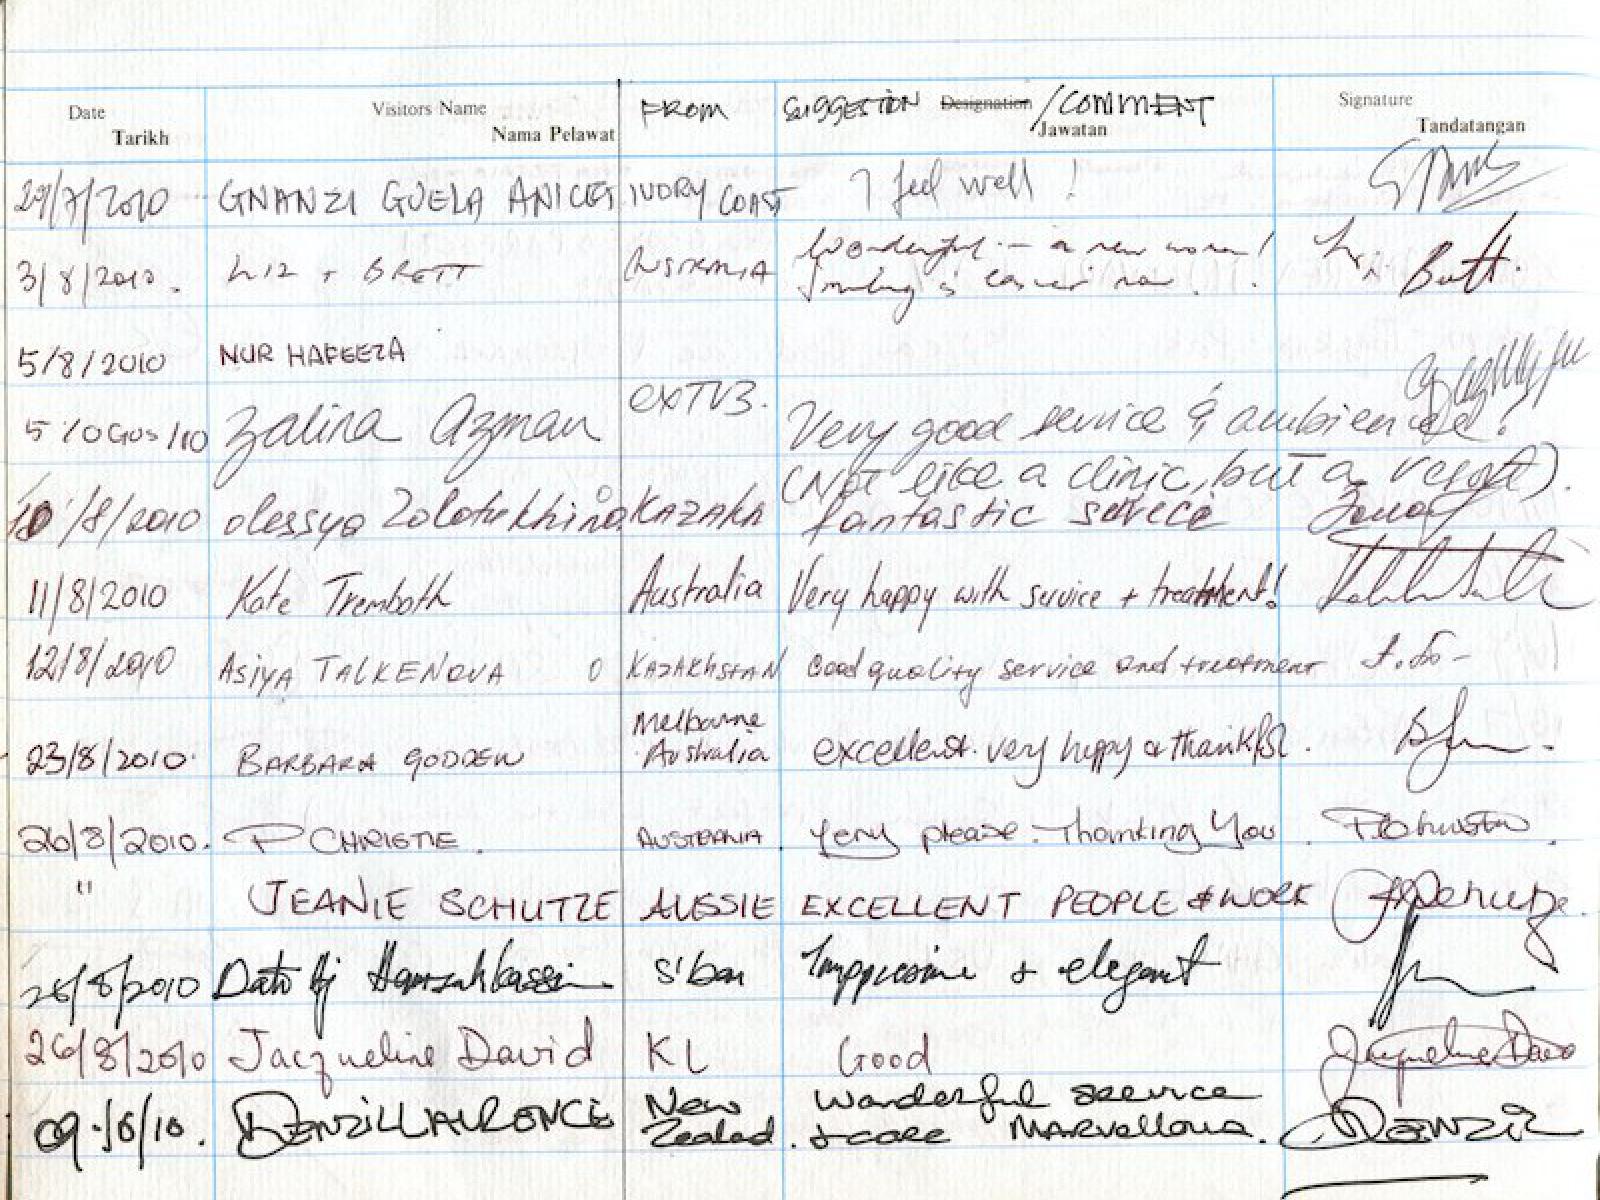 Date Visitors Name FROM SUGGESTION Designation /COMMENT Signature
Tarikh Nama Pelawat Jawatan Tandatangan
29/7/2010 GNANZI GUELA ANICET IVORY COAST I feel well !
3/8/2010. LIZ + BRETT AUSTRALIA Wonderful - a new woman!
Smiling is easier now. Brett.
5/8/2010 NUR HAFEEZA
5/OGOS/10 Zalina Azman exTV3. Very good service & ambience!
(Not like a clinic, but a resort).
10/8/2010 olessya Zolotukhina KAZAKH fantastic service
11/8/2010 Kate Tremboth Australia Very happy with service + treatment!
12/8/2010 ASIYA TALKENOVA KAZAKHSTAN Good quality service and treatment
23/8/2010. BARBARA GODDEN Melbourne Australia excellent. very happy & thankful.
26/8/2010. P CHRISTIE. AUSTRALIA Very please. Thanking You
" JEANIE SCHUTZE AUSSIE EXCELLENT PEOPLE & WORK
26/8/2010 Dato Hj Hamzah Kassim S'ban Imppressive + elegant
26/8/2010 Jacqueline David KL Good Jacqueline David
09./8/10. DENZIL LAURENCE New Zealad. Wonderful service
+ care MARVellous. Denzil